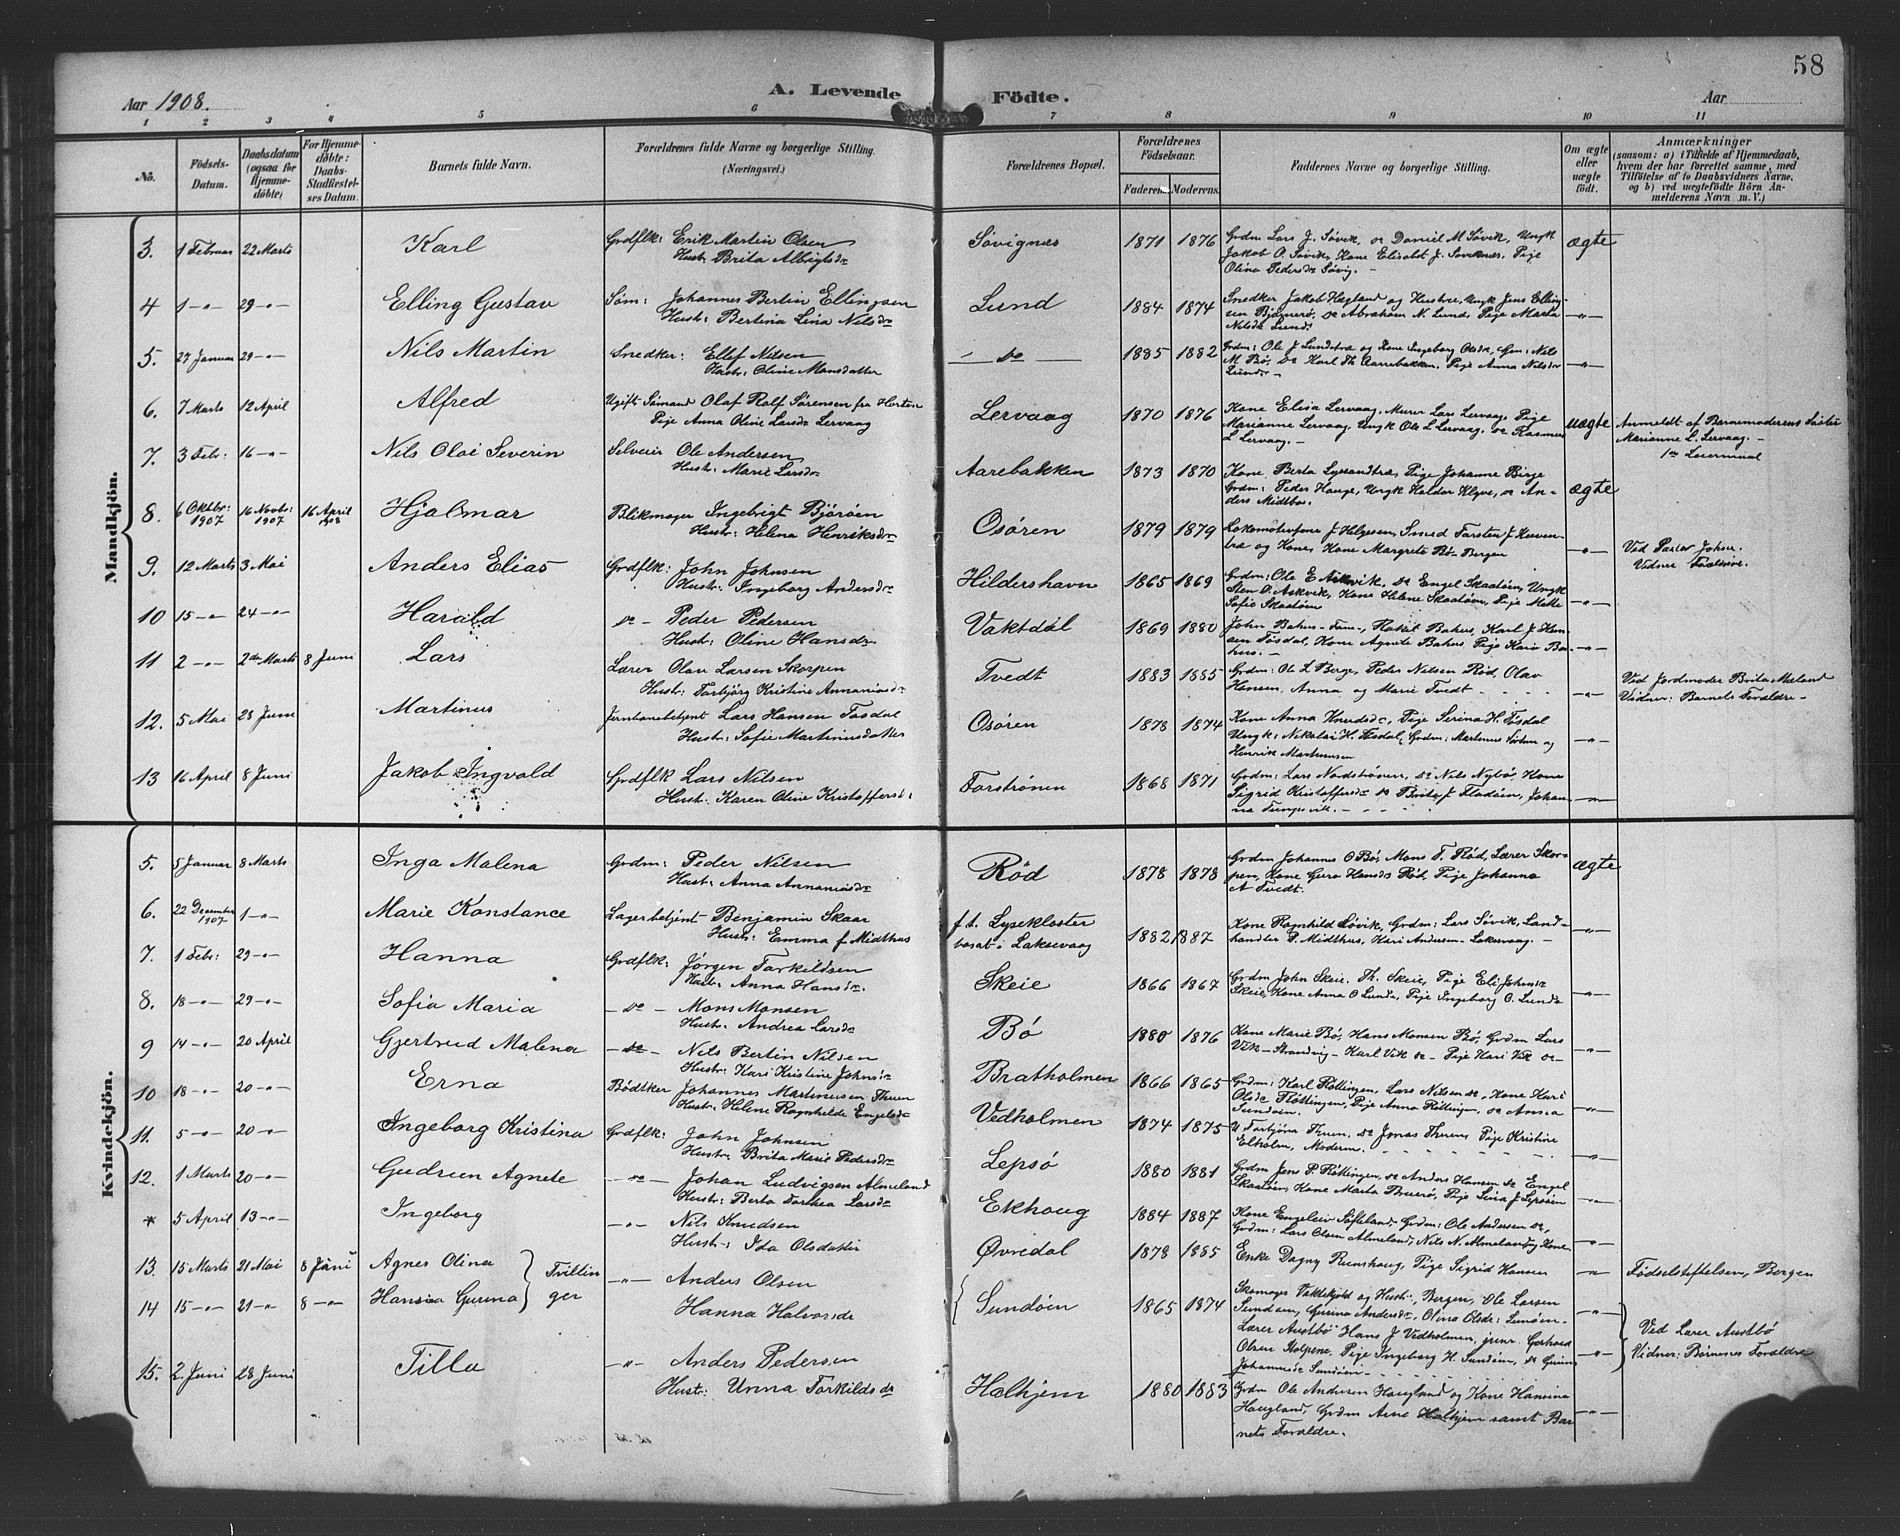 58
Aar 1908.
A. Levende Födte.
Aar
1 2 3 4 5 6 7 8 9 10 11
No.
Födsels-Datum.
Daabsdatum (ogsaa for Hjemme-döbte)
For Hjemme-döbte: Daabs-Stadfæstel-ses Datum.
Barnets fulde Navn.
Forældrenes fulde Navne og borgerlige Stilling.
(Næringsvei.)
Forældrenes Bopæl.
Forældrenes Födselsaar.
Faderens. Moderens.
Faddernes Navne og borgerlige Stilling.
Om ægte eller uægte födt.
Anmærkninger
(saasom: a) i Tilfælde af Hjemmedaab, hvem der har forrettet samme, med Tilföielse af to Daabsvidners Navne, og b) ved uegtefödte Börn An-melderens Navn m. V.)
Mandkjön.
3. 1 Februar 22 Marts Karl Grdflk: Erik Martin Olsen
Hust: Brita Albrigtsdr Søvignæs 1871 1876 Grdm Lars J. Søvik, do Daniel M Søvik, Ungk
Jakob O. Søvik, Kone Elisabet J. Søvknæs, Pige
Olina Pedersdr Søvig. - ægte
4 1 -"- 29 -"- Elling Gustav Søm: Johannes Bertin Ellingsen
Hust: Bertina Lina Nilsdr Lund 1884 1874 Snedker Jakob Hegland og Hustru, Ungk Jens Elling-
sen Bjørnerø, do Abraham N. Lund, Pige Marta
Nilsdr Lund. -"-
5. 27 Januar 29 -"- Nils Martin Snedker: Ellef Nilsen
Hust: Oline Monsdatter - do - 1885 1882 Grdm: Ole J Sundstrø og Kone Ingeborg Olsdr, Gm: Nils
M. Bø, do Karl Th Aarrebakken, Pige Anna Nilsdr
Lund - -"-
6. 7 Marts 12 April Alfred Ugift Sømand Olaf Rolf Sørensen fra Horten
Pige Anna Oline Larsdr Lervaag Lervaag 1870 1876 Kone Elisa Lervaag, Murer Lars Lervaag, Pige
Marianne Lervaag, Ungk Ole L Lervaag, do Rasmus
L Lervaag. - uægte Anmeldt af Barnemoderens Søster
Marianne L. Lervaag. -
1ste Leiermaal
7. 3 Febr: 16 -"- Nils Olai Severin Selveier Ole Andersen
Hust: Marie Larsdr Aarebakken 1873 1870 Kone Berta Lyssandtræ, Pige Johanne Birge
Grdm: Peder Hauge, Ungk Haldor Klyve, do An-
ders Midtbø. ægte
8. 6 Oktbr: 1907 16 Novbr: 1907 16 April 1908 Hjalmar Blikmager Ingebrigt Bjørøen
Hustr: Helena Henriksdr Osøren 1879 1879 Lokomotivføre J Helgesen, Smed Tarsten J.
og Kone, Kone Margrete Bø Bergen -"- Ved Pastor Johse.
Vidner Foræ
9. 12 Marts 3 Mai Anders Elias Grdflk: John Johnsen
Hust: Ingeborg Andersdr Hildershavn 1865 1869 Grdm: Ole E Askvik, do Engel Skaatøen, Ungk
Sten O. Askvik, Kone Helene Skaatøen, Pige Mette
Sofie Skaatøen -"-
10 15 -"- 24 -"- Harald do - Peder Pedersen
Hust: Oline Hansdr Vaktdal 1869 1880 John Bahus - Fam -, Hakil Bahus, Karl J Han-
sen Tøsdal, Kone Agnete Bahus, Pige Kari Ba-
hus. - -"-
11 2 -"- 2den Marts 8 Juni Lars Lærer Olav Larsen Skorpen
Hust: Torbjørg Kristine Annaniasdr Tvedt 1883 1885 Grdm: Ole L Berge, Peder Nilsen Rød, Olav
Hansen, Anna og Marie Tvedt -"- Ved Jordmoder Brita Meland
Vidner: Barnets Forældre -
12. 5 Mai 28 Juni Martinus Jernbanebetjent Lars Hansen Tøsdal
Hust: Sofie Martinusdatter Osøren 1878 1874 Kone Anna Knudsdr, Pige Serina H. Tøsdal
Ungk: Nikolai H. Tøsdal, Grdm: Martinus og
Henrik Martinusen -"-
13 16 April 8 Juni Jakob Ingvald Grdflk Lars Nilsen
Hust: Karen Oline Kristoffersdr: Forstrønen 1868 1871 Grdm: Lars Nordstrønen, do Nils Nybø, Kone
Sigrid Kristoffersdr do Brita J. Fladøen, Johan-
na Tungesvik. - -"-
Kvindekjön.
5. 5 Januar 8 Marts Inga Malena Grdm: Peder Nilsen
Hust: Anna Annaniasdr Rød 1878 1878 Grdm Johannes O Bø, Mons T. Rød, Lærer Skor-
pen, Kone Guro Hansdr Rød, Pige Johanna
A Tvedt. ægte
6. 22 December 1907 1 -"- Marie Konstance Lagerbetjent Benjamin Skaar
Hust: Emma f Midthus f. t. Lysekloster
bosat i Laksevaag 1882 1887 Kone Ragnhild Søvik, Grdm: Lars Søvik, Land-
handler P. Midthus, Kari Andersen - Laksevaag. - -"-
7. 1 Febr: 29 -"- Hanna Grdflk: Jørgen Torkildsen
Hust: Anna Hansdr. Skeie 1866 1867 Grdm John Skeie, Th. Skeie, Pige Eli Johnsdr
Skeie, Kone Anna O Lunde, Pige Ingeborg O. Lunde -"-
8. 18 -"- 29 -"- Sofia Maria - do - Mons Monsen
Hust: Andrea Larsdr Bø 1880 1876 Kone Marie Bø, Hans Monsen Bø, Grdm Lars
Vik - Strandvig - Karl Vik do - Pige Kari Vik do - -"-
9 14 -"- 20 April Gjertrud Malena - do - Nils Bertin Nilsen
Hust: Kari Kristine Johnsdr Bratholmen 1866 1865 Grdm: Karl Røttingen, Lars Nilsen do, Kone Kari
Olsdr Røttingen, Pige Anna Røttingen, do Anna
Sundøen. -"-
10 18 -"- 20 -"- Erna Bødtker Johannes Martinusen Thuen
Hust: Helene Ragnhilde Engelsdr Vedholmen 1874 1875 U Torbjøn Thuen, do Jonas Thuen, Pige Kristine
Elholm, Moderen. -"-
11. 5 -"- 20 -"- Ingeborg Kristina Grdflk: John Johnsen
Hust: Brita Marie Pedersdr Lepsø 1880 1881 Grdm Jens P. Røttingen, do Anders Hansen do Engel
Skaatøen, Kone Marta Bruerø, Pige Lina J. Lepsøen -"-
12. 1 Marts 20 -"- Gudrun Agnete - do - Johan Ludvigsen Almeland
Hust: Berta Torkea Larsdr Ekhoug 1884 1887 Kone Engeleiv Søfteland, Grdm: Ole Andersen do,
Grdm: Lars Olsen Almeland, Nils N. Almeland og Kone -"-
* 5 April 13 -"- Ingeborg -"- Nils Knudsen
Hust: Ida Olsdatter Øvredal 1878 1885 Enke Dagny Runshaug, Pige Sigrid Hansen -"- Födselstiftelsen, Bergen
13. 15 Marts 21 Mai 8 Juni Agnes Olina } Tvillin -"- Anders Olsen
14 15 -"- 21 -"- 8 -"- Hansea Gurina } ger Hanna Halvorsdr Sundøen 1865 1874 Skomager Vaktskjold og Hust:, Bergen, Ole Larsen
Sundøen, Gurina Andersdr, Olina Olsdr: Sundøen -
Lærer Austbø Hans J Vedholmen, junr. Gerhard
Olsen Kolpene, Pige Ingeborg H. Sundøen, do Gurin
Johannesdr Sundøen - -"- Ved Lærer Austbø
Vidner: Børnenes Forældre
15. 2 Juni 28 Juni Tilla -"- Anders Pedersen
Hust: Unna Torkildsdr Halhjem 1880 1883 Grdm Ole Andersen Haugland og Kone Hansina
Haugland, Grdm Arne Halhjem samt Bar-
nets Forældre. -"-